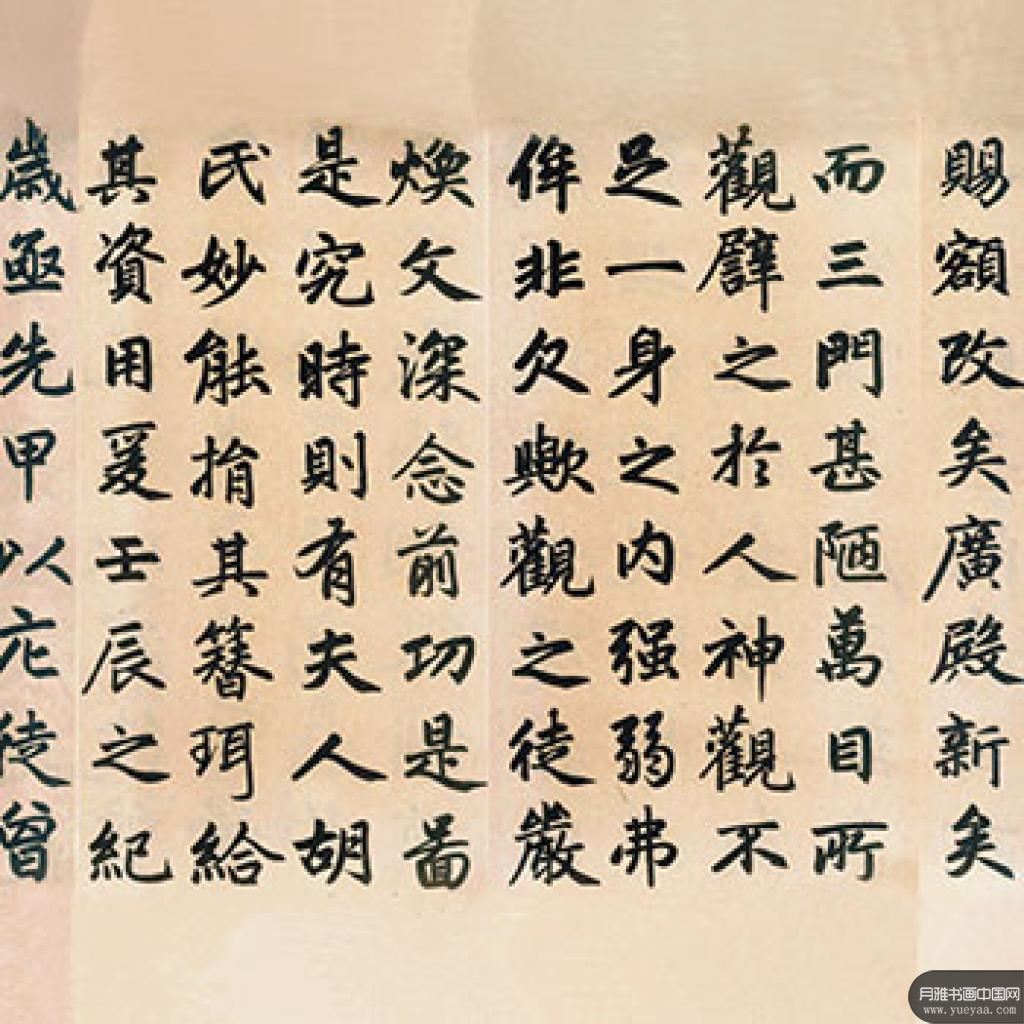 賜額改矣廣殿新矣
而三門甚陋萬目所
觀譬之於人神觀不
足一身之内强弱弗
侔非欠歟觀之徒嚴
煥文深念前功是啚
是究時則有夫人胡
氏妙能捐其簪珥給
其資用爰壬辰之紀
歲亟先甲以庀徒曾
月雅书画中国网
www.yueyaa.com